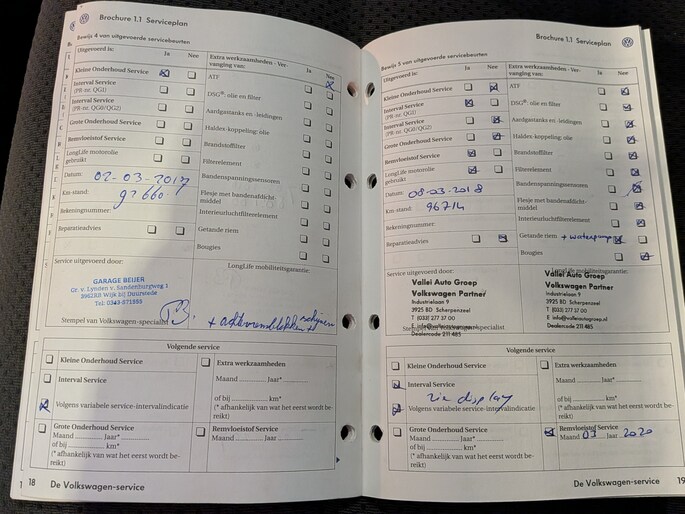 Brochure 1.1 Serviceplan
Bewijs 4 van uitgevoerde servicebeurten
Uitgevoerd is:
Ja
Nee
Extra werkzaamheden - Ver-
vanging van:
Ja
Nee
Kleine Onderhoud Service
ATF
Interval Service
(PR-nr. QG1)
DSG®: olie en filter
Interval Service
(PR-nr. QG0/QG2)
Aardgastanks en -leidingen
Grote Onderhoud Service
Haldex-koppeling: olie
Remvloeistof Service
Brandstoffilter
LongLife motorolie
gebruikt
Filterelement
Datum: 02-03-2017
Bandenspanningssensoren
Km-stand: 92660
Flesje met bandenafdicht-
middel
Rekeningnummer:
Interieurluchtfilterelement
Reparatieadvies
Getande riem
Bougies
Service uitgevoerd door:
LongLife mobiliteitsgarantie:
GARAGE BEIJER
Gr. v. Lynden v. Sandenburgweg 1
3962RB Wijk bij Duurstede
Tel: 0343-571855
Stempel van Volkswagen-specialist
+ achterremblokken + schijven
Volgende service
Kleine Onderhoud Service
Extra werkzaamheden
Interval Service
Maand Jaar*
Volgens variabele service-intervalindicatie
of bij km*
(* afhankelijk van wat het eerst wordt be-
reikt)
Grote Onderhoud Service
Maand Jaar*
of bij km*
(* afhankelijk van wat het eerst wordt be-
reikt)
Remvloeistof Service
Maand Jaar
1 18
De Volkswagen-service
Brochure 1.1 Serviceplan
Bewijs 5 van uitgevoerde servicebeurten
Uitgevoerd is:
Ja
Nee
Extra werkzaamheden - Ver-
vanging van:
Ja
Nee
Kleine Onderhoud Service
ATF
Interval Service
(PR-nr. QG1)
DSG®: olie en filter
Interval Service
(PR-nr. QG0/QG2)
Aardgastanks en -leidingen
Grote Onderhoud Service
Haldex-koppeling: olie
Remvloeistof Service
Brandstoffilter
LongLife motorolie
gebruikt
Filterelement
Datum: 08-03-2018
Bandenspanningssensoren
Km-stand: 96714
Flesje met bandenafdicht-
middel
Rekeningnummer:
Interieurluchtfilterelement
Reparatieadvies
Getande riem + waterpomp
Bougies
Service uitgevoerd door:
LongLife mobiliteitsgarantie:
Vallei Auto Groep
Volkswagen Partner
Industrielaan 9
3925 BD Scherpenzeel
T (033) 277 37 00
E info@valleiautogroep.nl
Dealercode 211 485
Stempel van Volkswagen-specialist
Vallei Auto Groep
Volkswagen Partner
Industrielaan 9
3925 BD Scherpenzeel
T (033) 277 37 00
E info@valleiautogroep.nl
Dealercode 211 485
Volgende service
Kleine Onderhoud Service
Extra werkzaamheden
Interval Service
Maand Jaar*
zie display
Volgens variabele service-intervalindicatie
of bij km*
(* afhankelijk van wat het eerst wordt be-
reikt)
Grote Onderhoud Service
Maand Jaar*
of bij km*
(* afhankelijk van wat het eerst wordt be-
reikt)
Remvloeistof Service
Maand 03 Jaar 2020
De Volkswagen-service
19